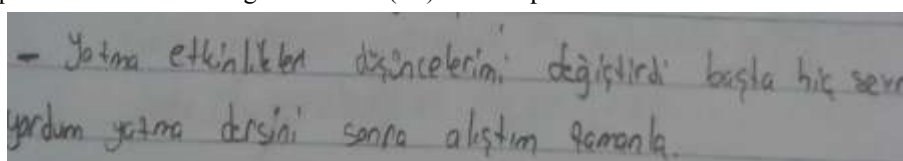 - Yatma etkinlikleri düşüncelerimi değiştirdi başta hiç sevm
yordum yatma dersini sonra alıştım zamanla.